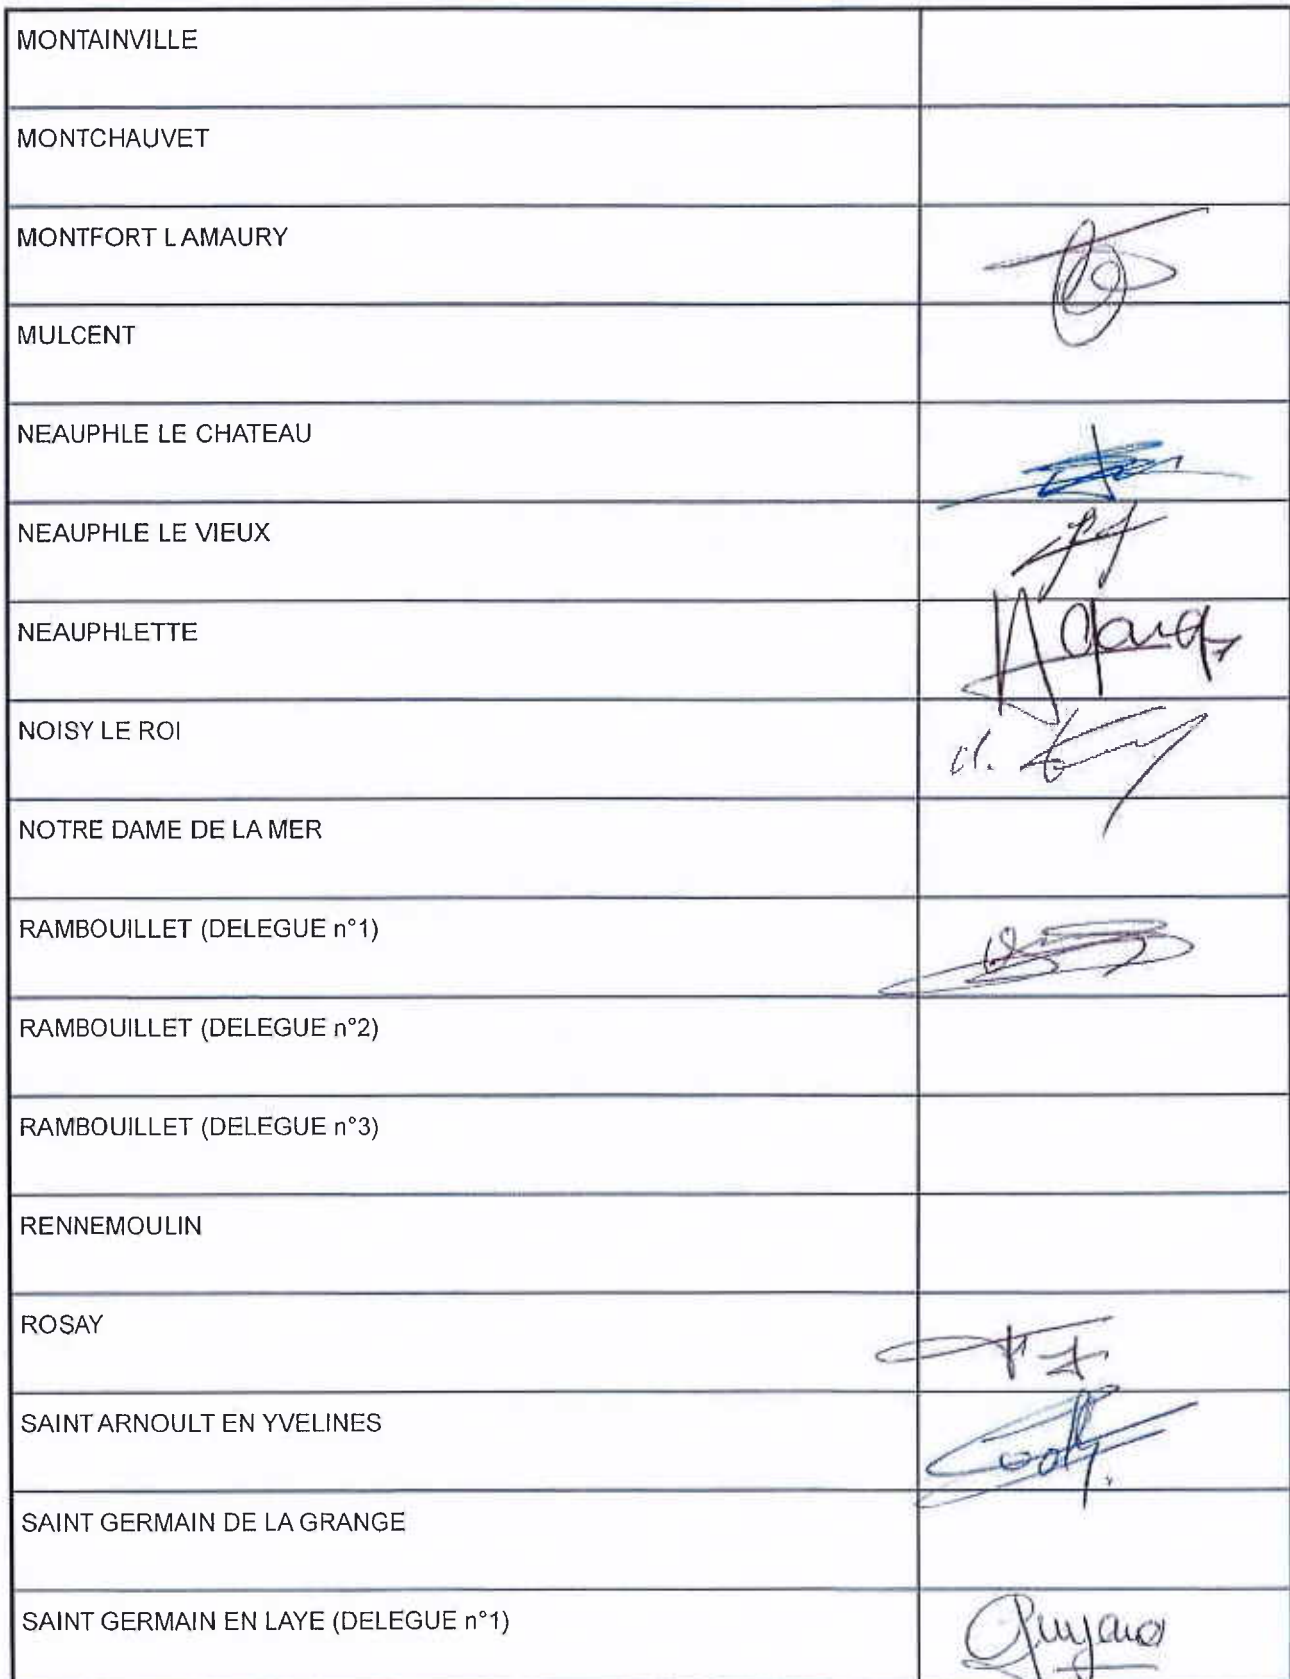 MONTAINVILLE
MONTCHAUVET
MONTFORT LAMAURY
MULCENT
NEAUPHLE LE CHATEAU
NEAUPHLE LE VIEUX
NEAUPHLETTE
NOISY LE ROI
NOTRE DAME DE LA MER
RAMBOUILLET (DELEGUE n°1)
RAMBOUILLET (DELEGUE n°2)
RAMBOUILLET (DELEGUE n°3)
RENNEMOULIN
ROSAY
SAINT ARNOULT EN YVELINES
SAINT GERMAIN DE LA GRANGE
SAINT GERMAIN EN LAYE (DELEGUE n°1)